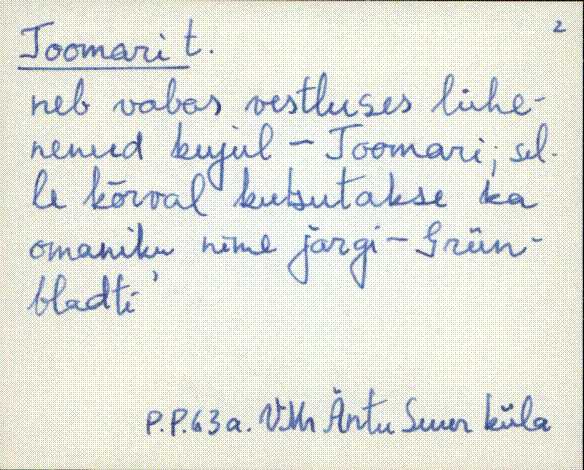 2
Toomari t.
neb vabas vestluses lühe-
nenud kujul - Toomari; sel-
le kõrval kutsutakse ka
omaniku nime järgi - Grün-
bladti
P.P. 63 a. VMr Äntu Suur küla